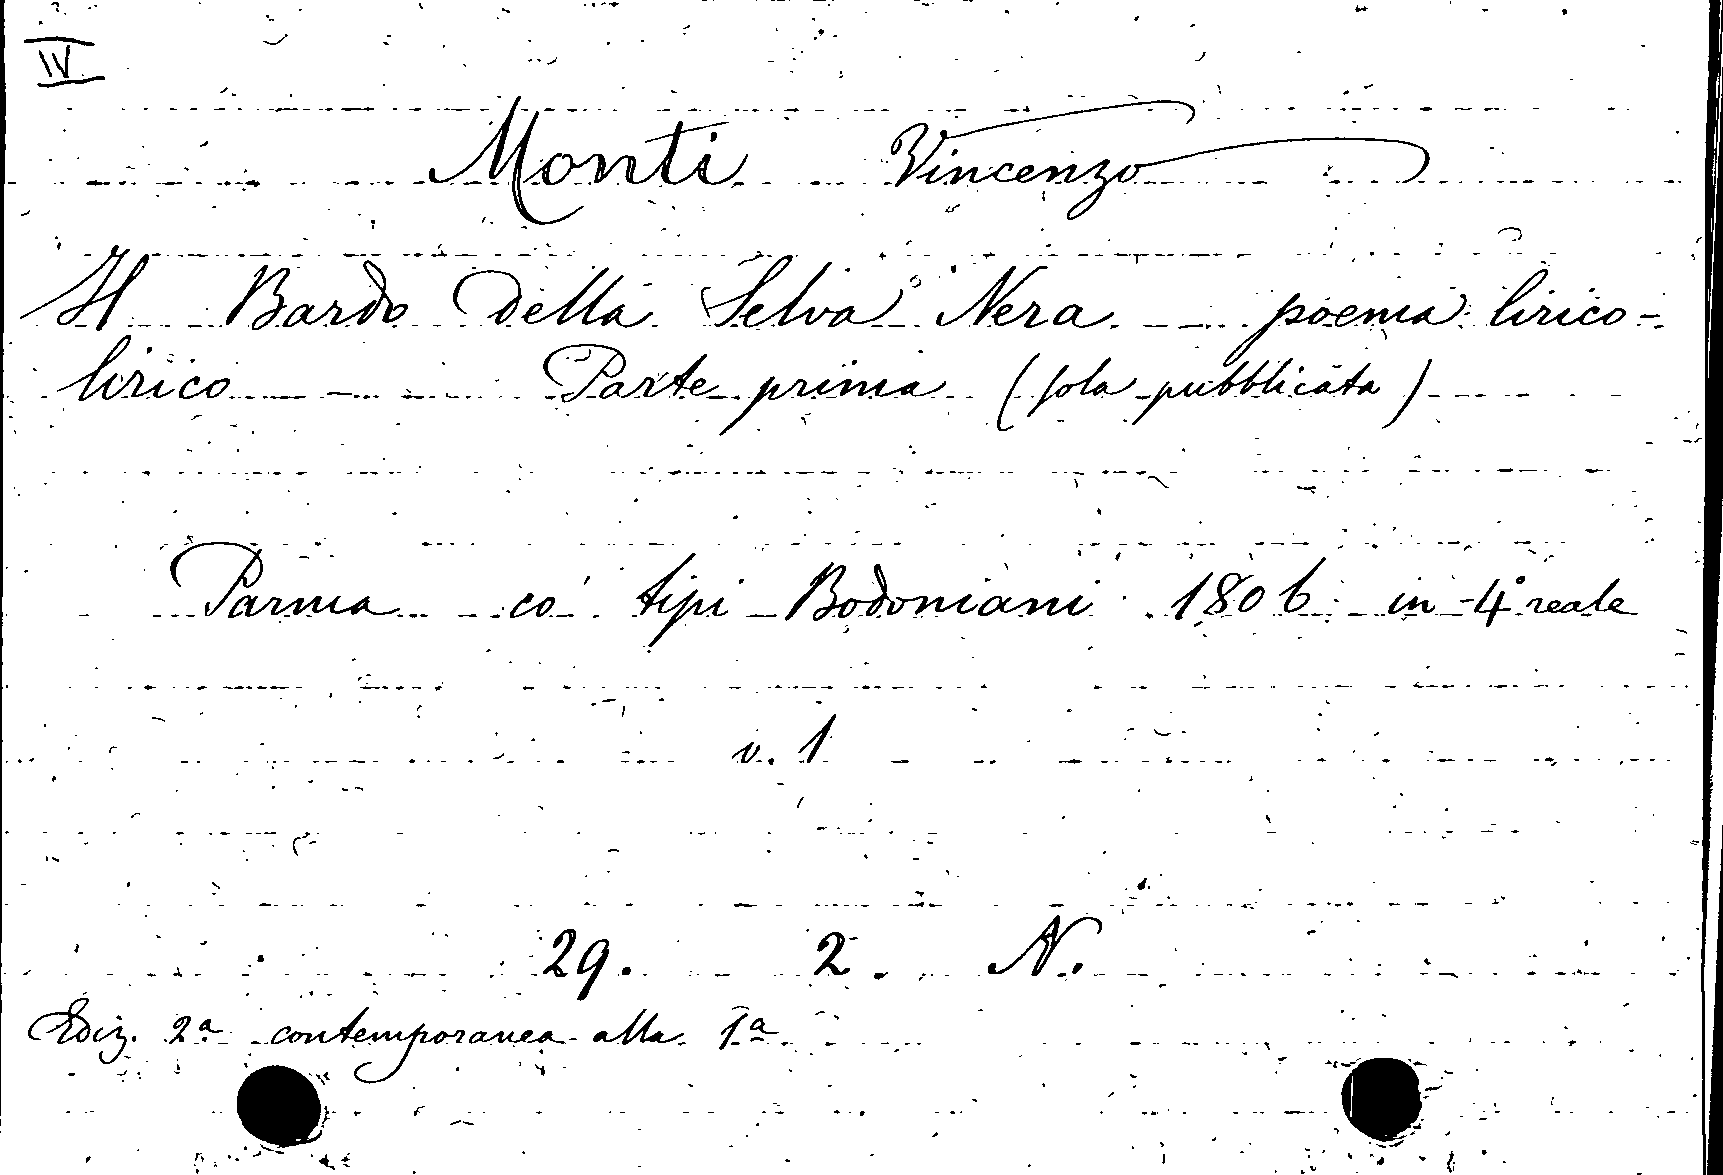 IV
Monti Vincenzo
Il Bardo della Selva Nera poema lirico-
lirico Parte prima (sola pubblicata)
Parma co' tipi Bodoniani 1806 in-4° reale
v. 1
29. 2. N.
Ediz. 2ª contemporanea alla 1ª